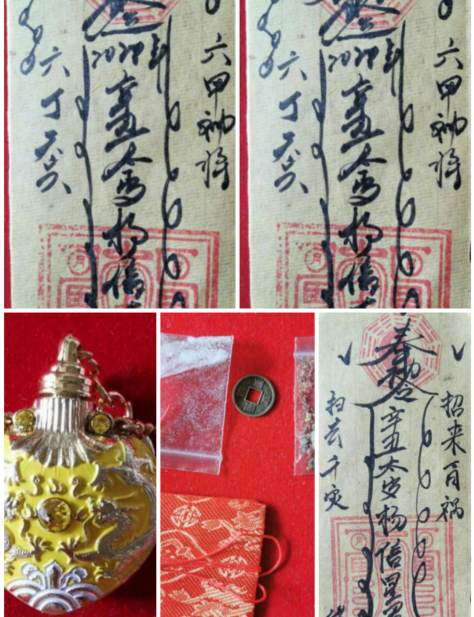 六甲神将
辛丑太岁杨信
六丁天兵
六甲神将
辛丑太岁杨信
六丁天兵
月
月
招来百福
奉勅令
辛丑太岁杨信星君
扫去千灾